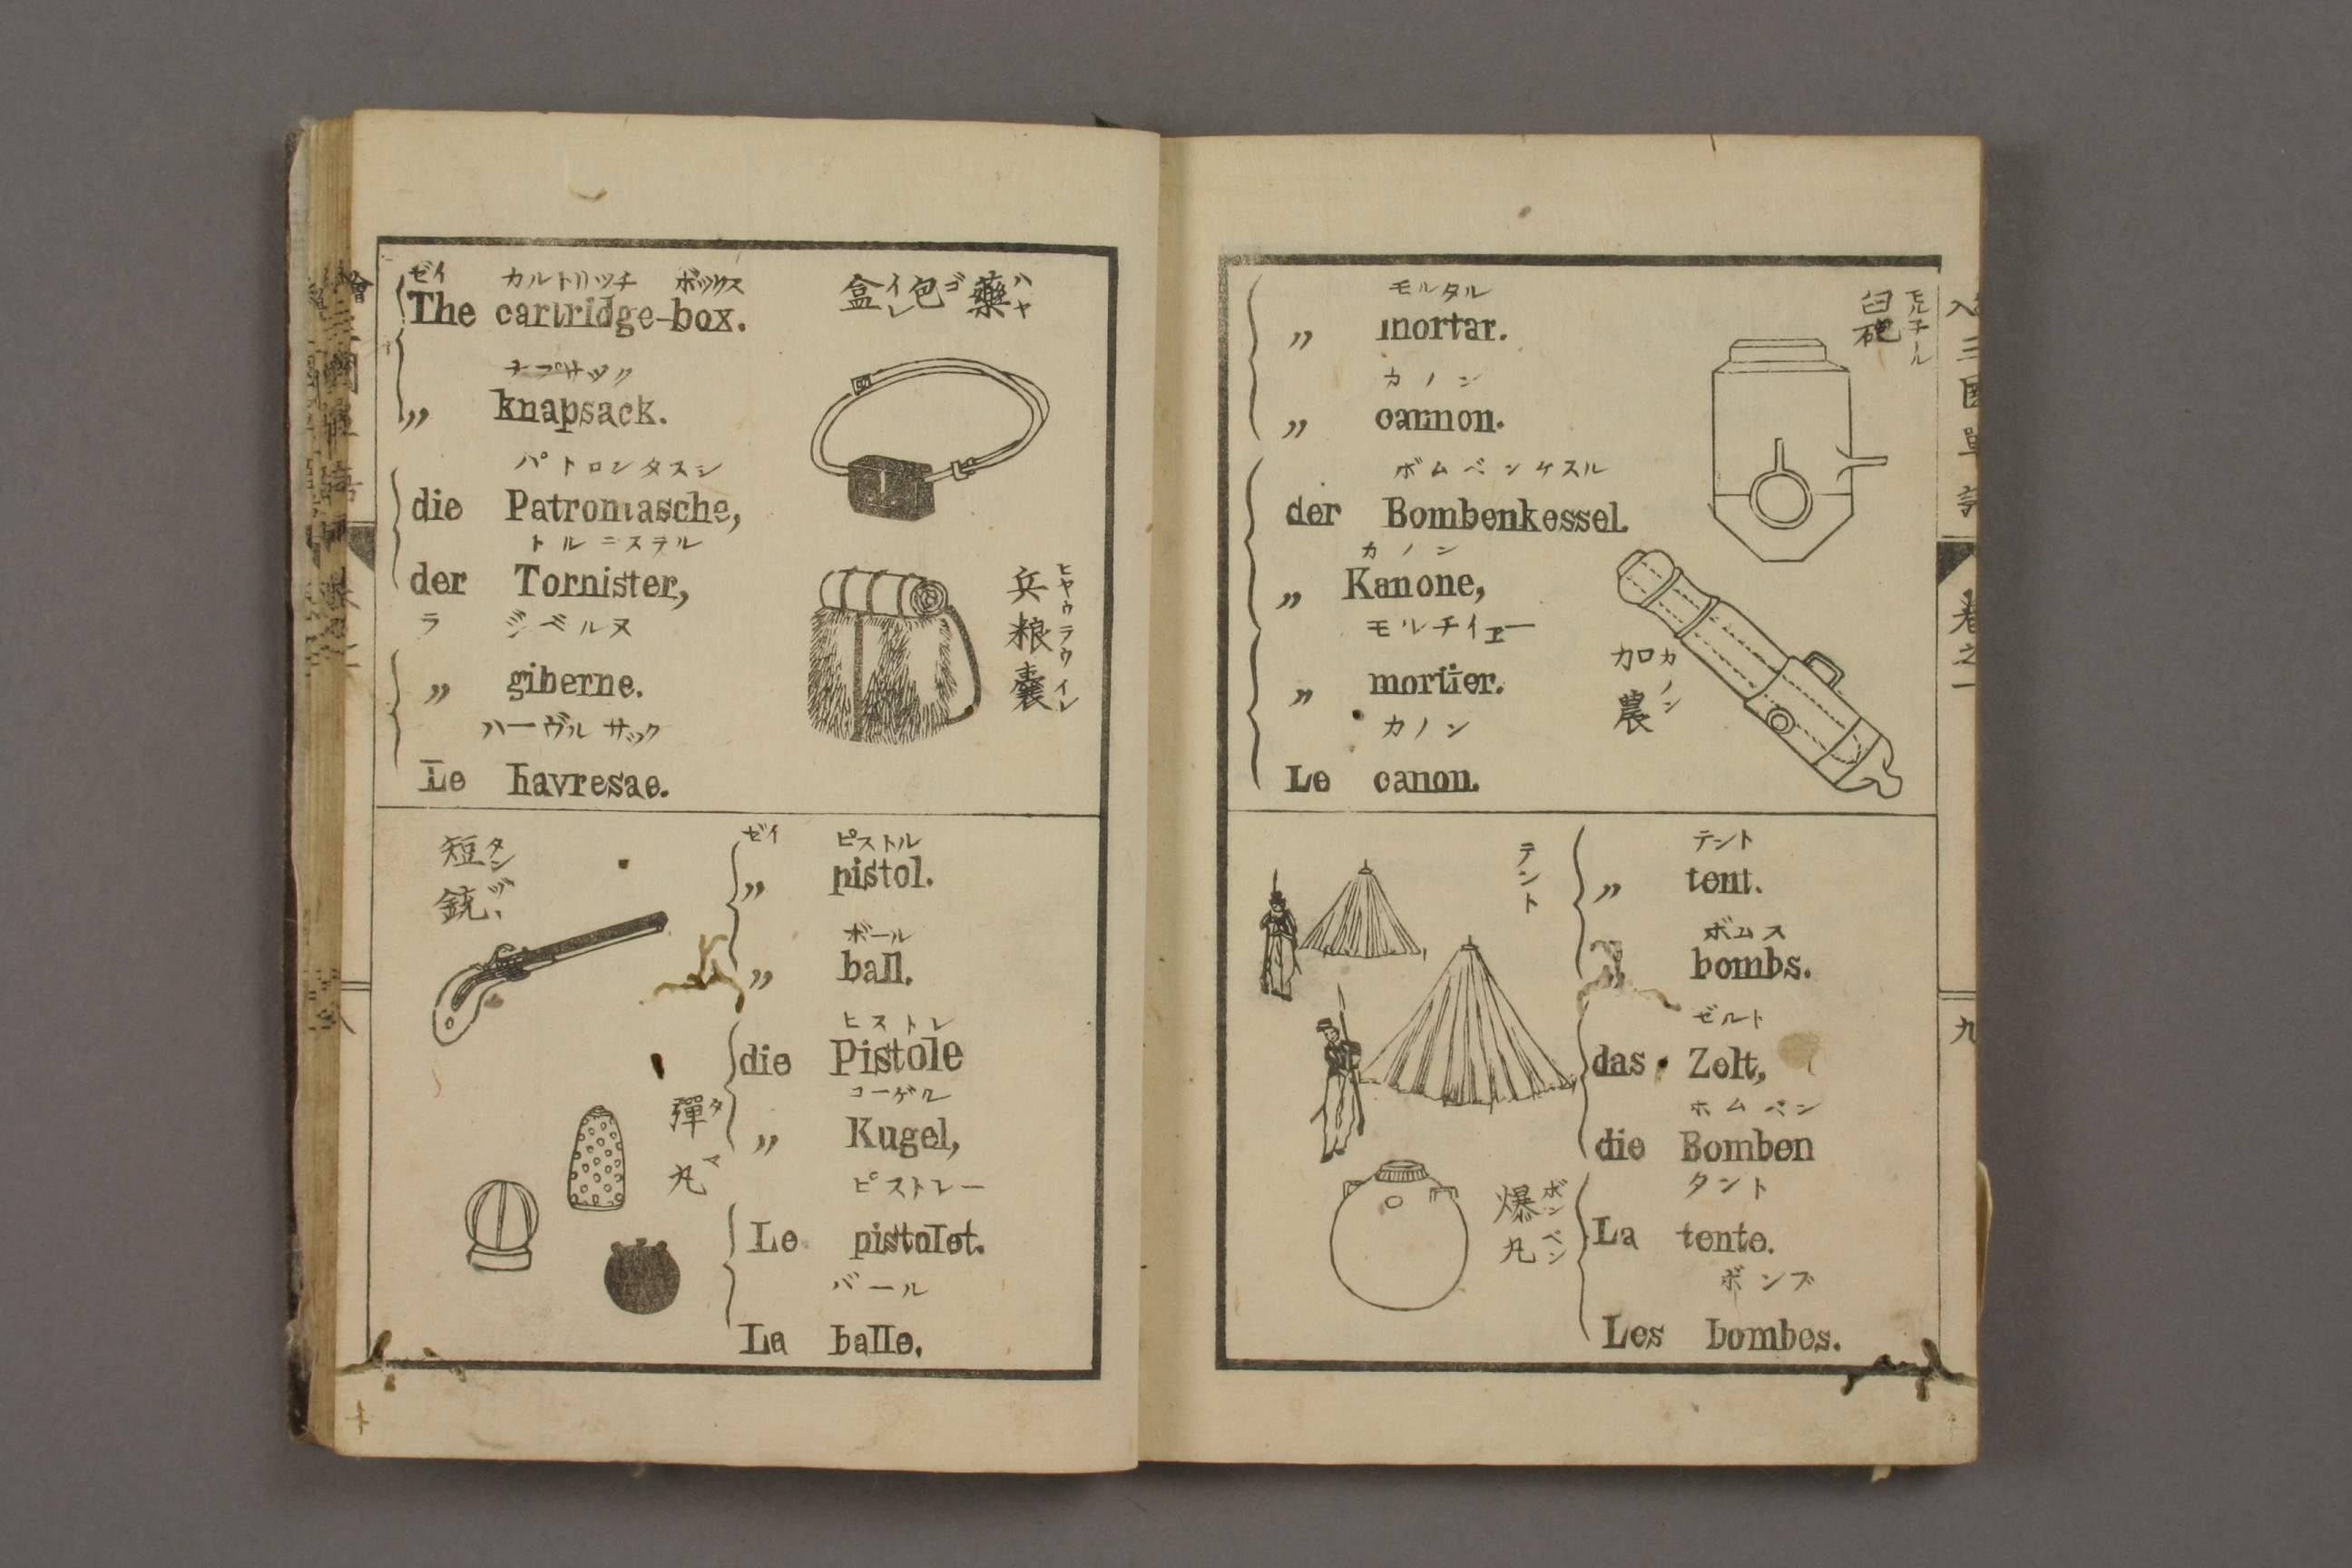 ゼイ カルトリツチ ボックス
The cartridge-box.
ナプサック
„ knapsack.
パトロンタスシ
die Patrontasche,
トルニステル
der Tornister,
ラ ジベルヌ
„ giberne.
ハーヴル サック
Le havresae.
藥包盒
ハヤゴイレ
兵粮嚢
ヒヤウラウイレ
短銃
タンヅヽ
彈丸
タマ
ゼイ ピストル
„ pistol.
ボール
„ ball.
ヒストレ
die Pistole
コーゲル
„ Kugel,
ピストレー
Le pistolet.
バール
La balle.
モルタル
„ mortar.
カノン
„ cannon.
ボムベンケスル
der Bombenkessel.
カノン
„ Kanone,
モルチイエー
„ mortier.
カノン
Le canon.
臼砲
モルチール
加農
カノン
テント
爆丸
ボンベン
テント
„ tent.
ボムス
„ bombs.
ゼルト
das Zelt,
ホムベン
die Bomben
タント
La tente.
ボンブ
Les bombes.
三國單
卷之一
九